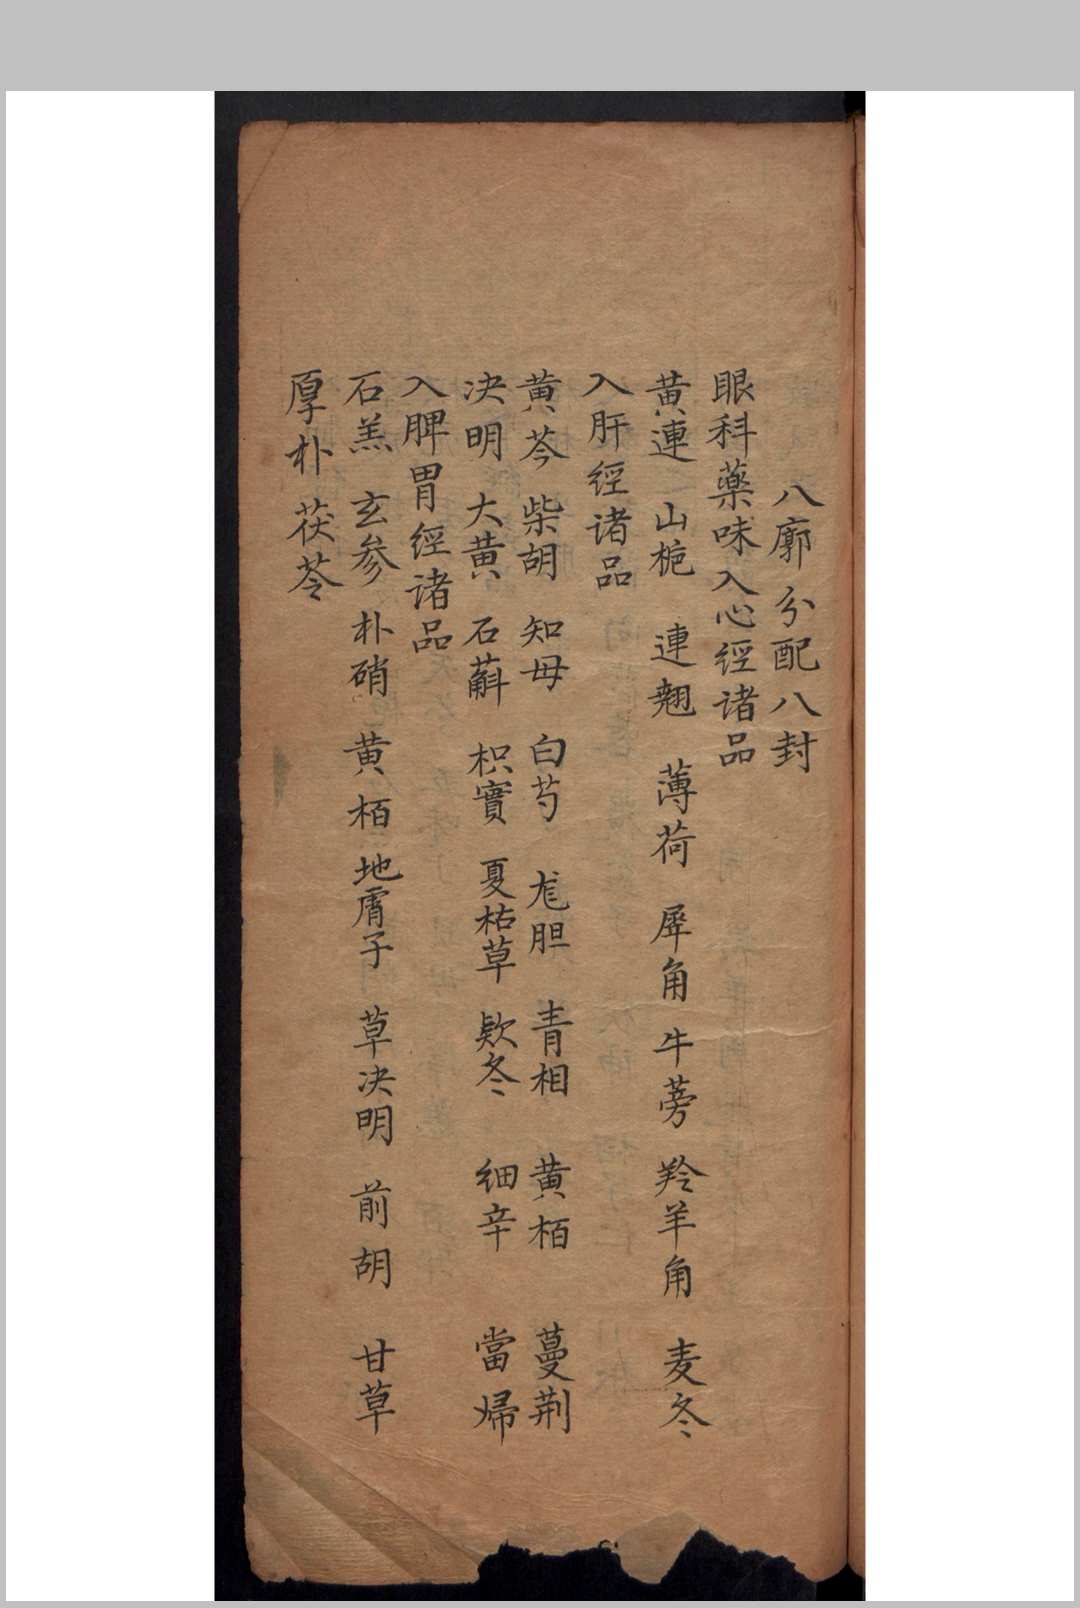 八廓分配八封
眼科藥味入心經诸品
黄連 山栀 連翘 薄荷 犀角 牛蒡 羚羊角 麦冬
入肝經诸品
黄芩 柴胡 知母 白芍 龙胆 青相 黄栢 蔓荆
决明 大黄 石斛 枳實 夏枯草 欵冬 细辛 當婦
入脾胃經诸品
石羔 玄参 朴硝 黄栢 地膚子 草决明 前胡 甘草
厚朴 茯苓